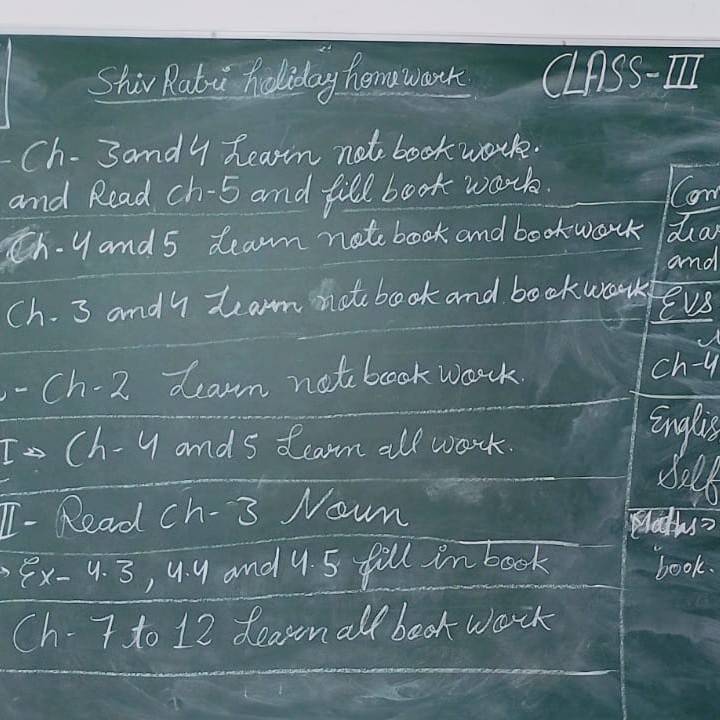 Shiv Ratri holiday homework
CLASS-III
- Ch- 3 and 4 Learn note book work.
and Read ch-5 and fill book work.
Ch-4 and 5 Learn note book and book work
Ch. 3 and 4 Learn note book and book work
- Ch-2 Learn note book work.
I » Ch- 4 and 5 Learn all work.
II - Read Ch-3 Noun
Ex- 4.3, 4.4 and 4.5 fill in book
Ch- 7 to 12 Learn all book work
Com
Lea
and
EVS
Ch-4
Englis
Self
Maths
book.